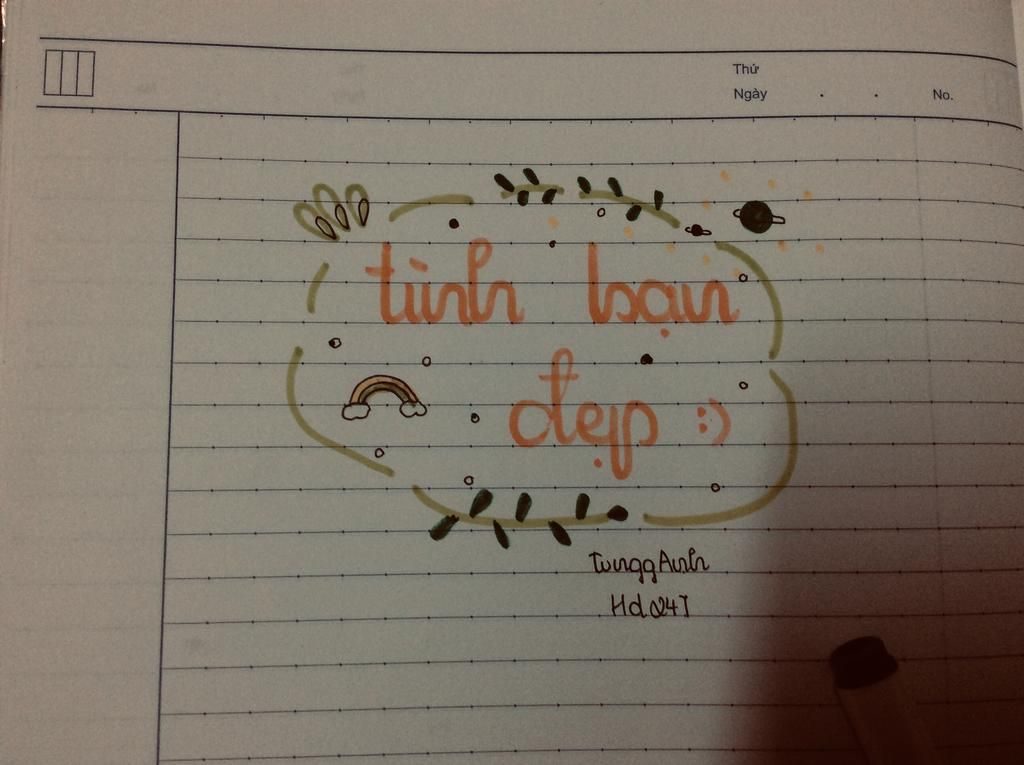 Thứ
Ngày . . No.
tình bạn
đẹp :)
TunggAnh
Hd247